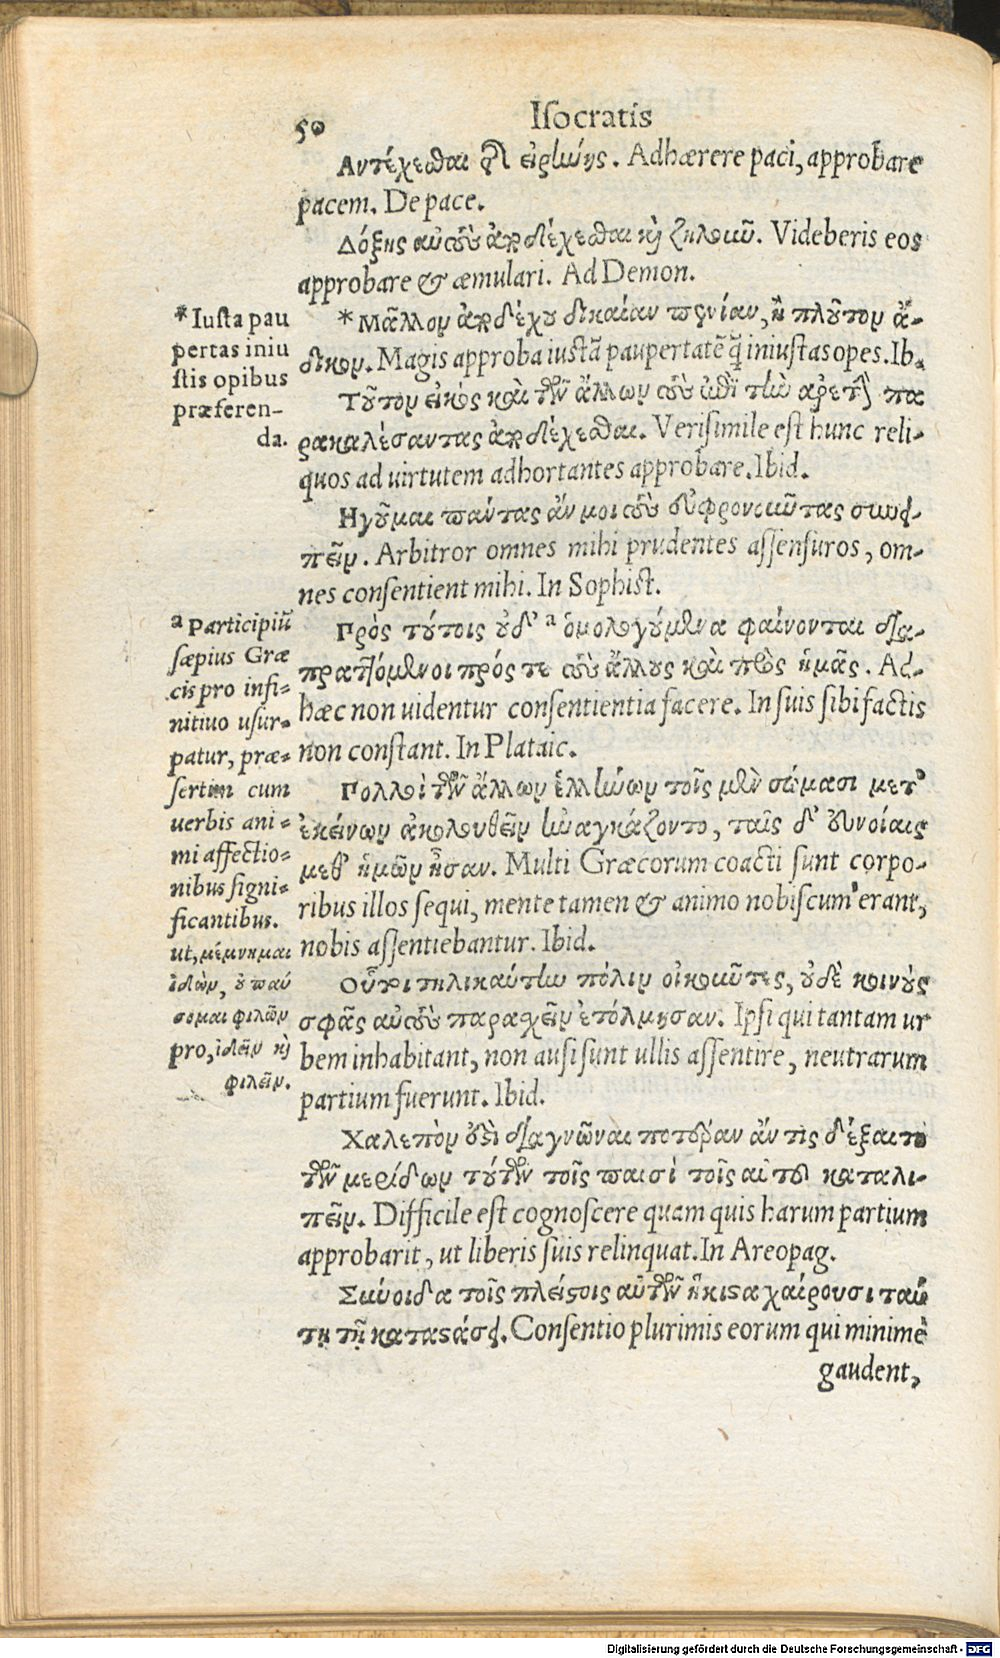 50
Isocratis
Αντέχεσθαι τῆς εἰρήνης. Adhærere paci, approbare
pacem. De pace.
Δόξης αὐτοὺς ἀποδέχεσθαι καὶ ζηλοῦν. Videberis eos
approbare & æmulari. Ad Demon.
*Μᾶλλον ἀποδέχου δικαίαν πενίαν, ἢ πλοῦτον ἄ-
δικον. Magis approba iustā paupertatē q̄ iniustas opes. Ib.
Τοῦτον εἰκός καὶ τῶν ἄλλων τοὺς ἐπὶ τὴν ἀρετὴν πα
ρακαλέσαντας ἀποδέχεσθαι. Verisimile est hunc reli-
quos ad uirtutem adhortantes approbare. Ibid.
Ηγοῦμαι πάντας ἄν μοι τοὺς εὐφρονοῦντας συνει-
πεῖν. Arbitror omnes mihi prudentes assensuros, om-
nes consentient mihi. In Sophist.
Πρὸς τούτοις οὐδ' ᵃ ὁμολογούμενα φαίνονται δια-
πραττόμενοι πρός τε τοὺς ἄλλους καὶ πρὸς ἡμᾶς. Ad
hæc non uidentur consentientia facere. In suis sibi factis
non constant. In Plataic.
Πολλοὶ τῶν ἄλλων ἑλλήνων τοῖς μὲν σώμασι μετ'
ἐκείνων ἀκολουθεῖν ἠναγκάζοντο, ταῖς δ' εὐνοίαις
μεθ' ἡμῶν ἦσαν. Multi Græcorum coacti sunt corpo-
ribus illos sequi, mente tamen & animo nobiscum erant,
nobis assentiebantur. Ibid.
Οὗτοι τηλικαύτην πόλιν οἰκοῦντες, οὐδὲ κοινοὺς
σφᾶς αὐτοὺς παρασχεῖν ἐτόλμησαν. Ipsi qui tantam ur
bem inhabitant, non ausi sunt ullis assentire, neutrarum
partium fuerunt. Ibid.
Χαλεπὸν ἐστὶ διαγνῶναι ποτέραν ἄν τις δέξαιτο
τῶν μερίδων τούτων τοῖς παισὶ τοῖς αὑτοῦ καταλι-
πεῖν. Difficile est cognoscere quam quis harum partium
approbarit, ut liberis suis relinquat. In Areopag.
Σύνοιδα τοῖς πλείστοις αὐτῶν ἥκιστα χαίρουσι ταύ
τῃ τῇ καταστάσει. Consentio plurimis eorum qui minime
gaudent,
*Iusta pau
pertas iniu
stis opibus
præferen-
da.
ᵃ Participiū
sæpius Græ
cis pro infi-
nitiuo usur-
patur, præ-
sertim cum
uerbis ani-
mi affectio-
nibus signi-
ficantibus.
ut, μέμνημαι
ἰδὼν, οὐ παύ
σομαι φιλῶν
pro, ἰδεῖν καὶ
φιλεῖν.
Digitalisierung gefördert durch die Deutsche Forschungsgemeinschaft - DFG